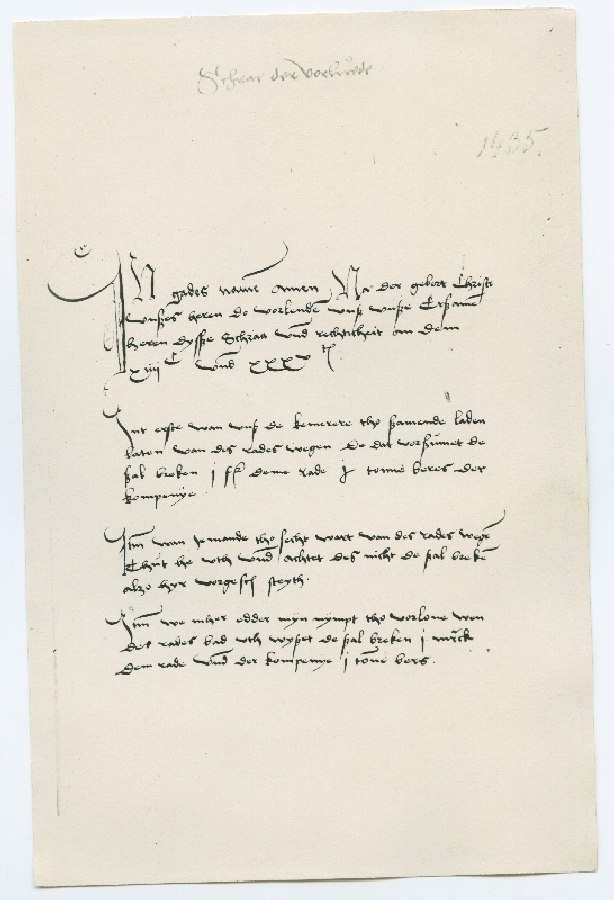 Schraa der vorlüde
1435.
IN gades name amen Na der gebort Christi
vnszes heren do vorlende vnsz vnsze Ersame
heren dysse Schraa vnd rechticheit am dem
xiiij C vnd xxxv te
Int erste wan vnsz de kemerere tho hamende laden
laten van des rades wegen de dat vorsumet de
sal breken j deme rade j tonne beres der
kompenye
Itm wan jemande tho secht wart van des rades wege
he vth vnd achtet des nicht de sal breke
alzo hyr vorgesch steyth.
Itm we mher edder myn nympt tho vorlone wen
des rades bad vth wyszet de sal breken j marck
deme rade vnd der kompenye j tone bers.